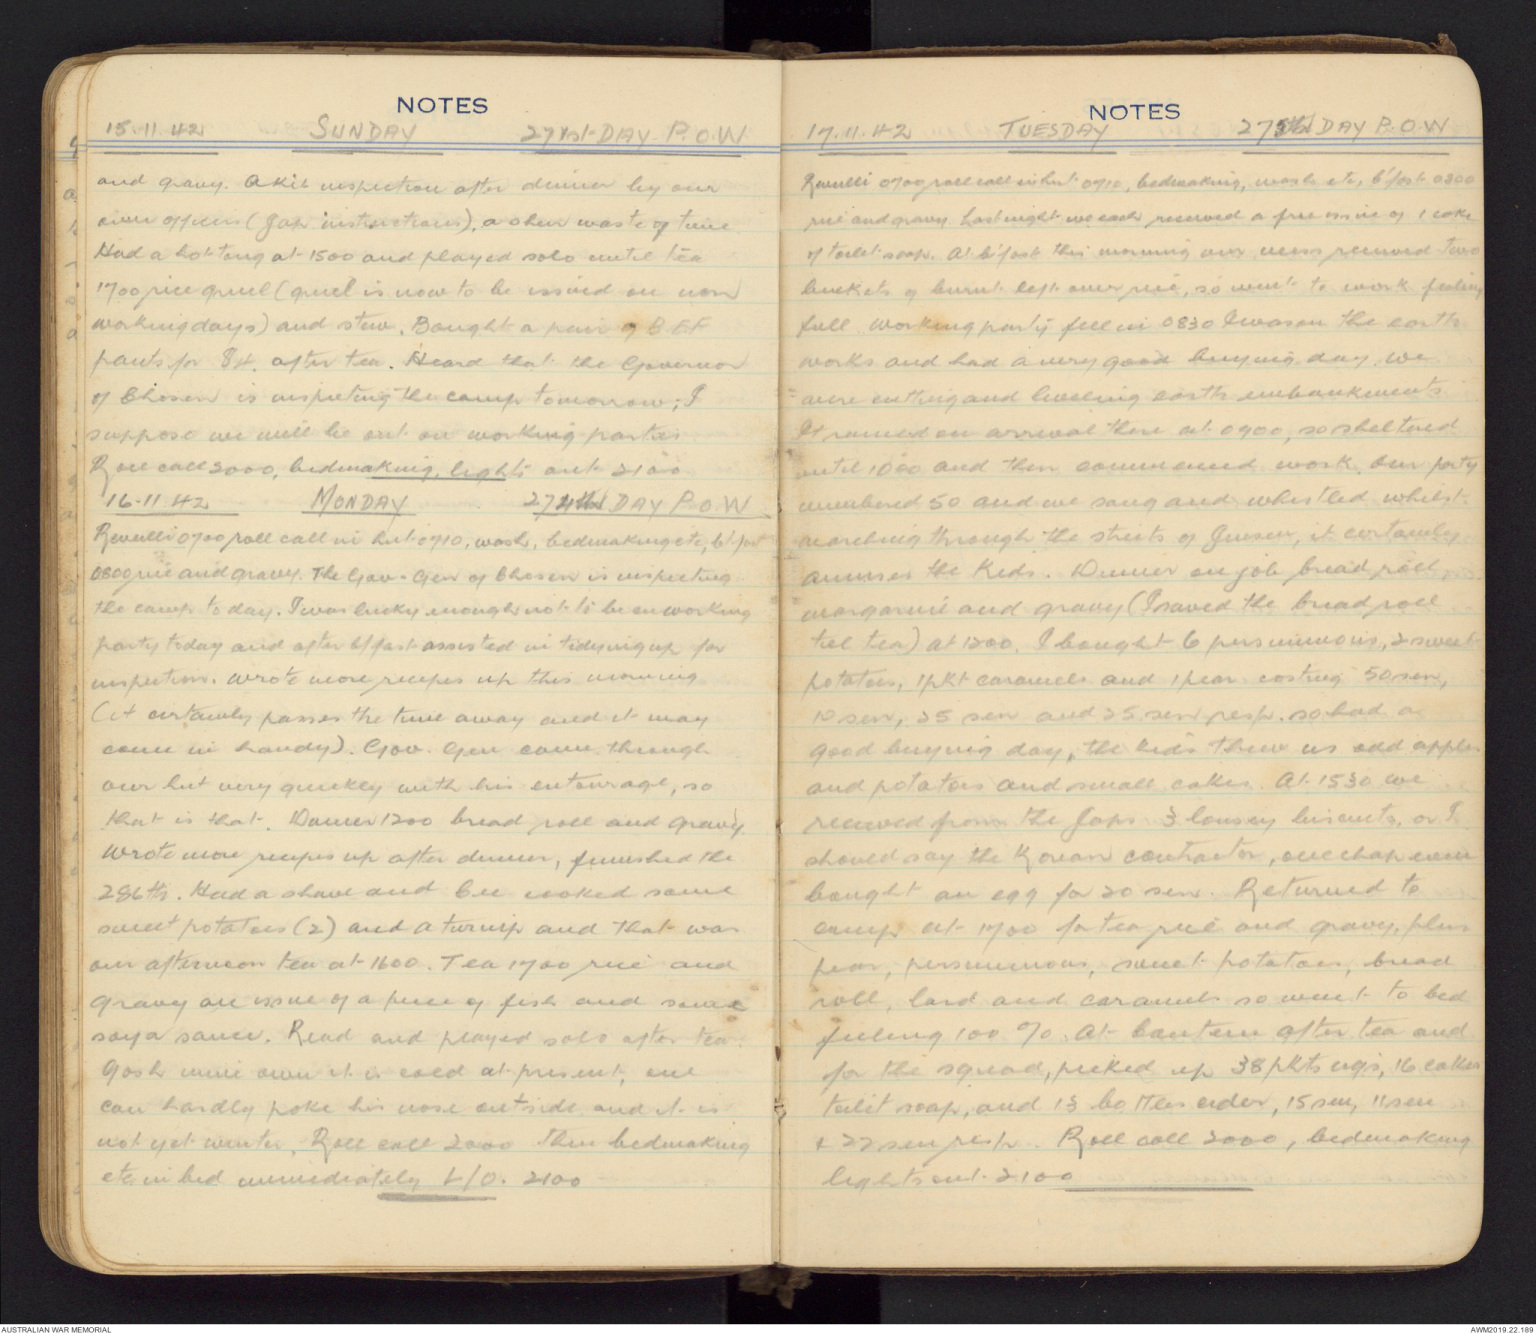 NOTES
15.11.42 SUNDAY 27 DAY P.O.W
and gravy. A kit inspection after dinner by our
own officers (Jap instructions), a sheer waste of time.
Had a hot tong at 1500 and played solo until tea
1700 rice gruel (gruel is now to be issued on non
working days) and stew. Bought a pair of BEF
pants for after tea. Heard that the Governor
of Chosen is inspecting the camp tomorrow; I
suppose we will be out on working parties
Roll call 2000, bedmaking, lights out 2100
16-11-42 MONDAY 274th DAY P.O.W
Reveille 0700 roll call in hut 0710, wash, bedmaking etc, b'fast
0800 rice and gravy. The Gov-Gen of Chosen is inspecting
the camp today. I was lucky enough not to be on working
party today and after b'fast assisted in tidying up for
inspection. Wrote more recipes up this morning
(it certainly passes the time away and it may
come in handy). Gov. Gen came through
our hut very quickly with his entourage, so
that is that. Dinner 1200 bread roll and gravy.
Wrote more recipes up after dinner, finished the
286th. Had a shave and cooked some
sweet potatoes (2) and a turnip and that was
our afternoon tea at 1600. Tea 1700 rice and
gravy an issue of a piece of fish and some
soya sauce. Read and played solo after tea.
Gosh mine own it is cold at present, one
can hardly poke his nose outside and it is
not yet winter. Roll call 2000 then bedmaking
etc in bed immediately L/O. 2100
NOTES
17.11.42 TUESDAY 275th DAY P.O.W
Reveille 0700 roll call in hut 0710, bedmaking, wash etc, b'fast 0800
rice and gravy. Last night we each received a free issue of 1 cake
of toilet soap. At b'fast this morning our mess received two
buckets of burnt left over rice, so went to work feeling
full. Working party fell in 0830 I was on the earth
works and had a very good buying day. We
were cutting and levelling earth embankments
It rained on arrival there at 0900, so sheltered
until 1000 and then commenced work. Our party
numbered 50 and we sang and whistled whilst
marching through the streets of Jinsen, it certainly
amuses the kids. Dinner on job bread roll,
margarine and gravy (I saved the bread roll
till tea) at 1200. I bought 6 persimmons, 2 sweet
potatoes, 1 pkt caramels and 1 pear costing 50 sen,
10 sen, 25 sen and 25 sen resp. so had a
good buying day, the kids threw us odd apples
and potatoes and small cakes. At 1530 we
received from the Japs 3 lousy biscuits, or I
should say the Korean contractor, one chap even
bought an egg for 20 sen. Returned to
camp at 1700 for tea rice and gravy, plus
pear, persimmons, sweet potatoes, bread
roll, lard and caramels so went to bed
feeling 100%. At canteen after tea and
for the squad, picked up 38 pkts cigs, 16 cakes
toilet soap, and 13 bottles cider, 15 sen, 11 sen
& 22 sen resp. Roll call 2000, bedmaking
lights out 2100
AUSTRALIAN WAR MEMORIAL
AWM2019.22.189